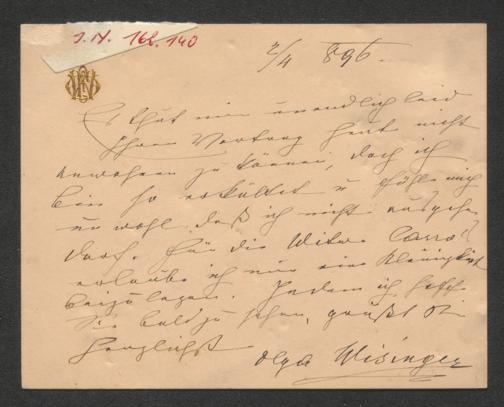 I.N. 162.140
2/4 896.
Es thut mir unendlich leid
Ihrem Vortrag heut nicht
anwohnen zu können, doch ich
bin so erkältet u fühle mich
unwohl daß ich nicht ausgehen
darf. Für die Witwe
erlaube ich mir eine Kleinigkeit
beizulegen. Indem ich hoffe
Sie bald zu sehen, grüßt Sie
herzlichst
Olga Wisinger